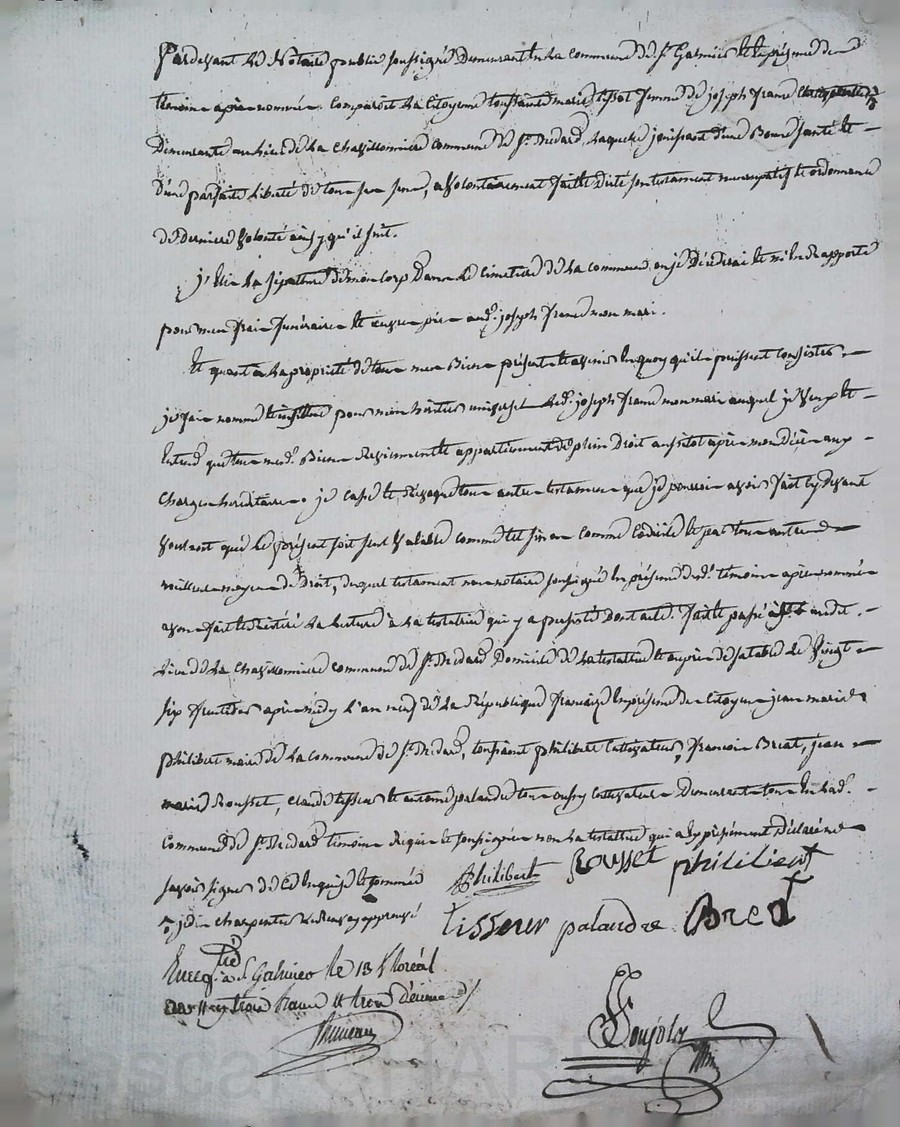 Pardevant le Notaire public soussigné Demeurant en la commune de St Galmier et en présence des
témoins apres nommés. Comparoit la Citoyenne toussainte marie tissot femme de joseph franc
Demeurante au lieu de la Chavillonniere commune de St Medard, Laquelle jouissant d'une Bonne santé et
D'une parfaite liberté de tous ses sens, a Volontairement fait et dicté son testament nuncupatif et ordonnance
de Derniere Volonté ainsy qu'il suit.
j'élis la sépulture de mon corp Dans le Cimetiere de la commune ou je Décéderai et m'en Rapporte
pour mes frais funéraires et œuvres pies aud. joseph franc mon mari.
Et quant a la propriété de tous mes Biens présents et avenirs en quoy qu'ils puissent Consister
je fais nomme et institue pour mon héritier universel led. joseph franc mon mari auquel je Veux et
Entend que tous mesd. Biens Reviennent et appartiennent de plein Droit aussitot apres mon Décès aux
Charges héréditaires. je Casse et Révoque tous autres testaments que je pourrois avoir fait cy devant
Voulant que le présent soit seul Valable comme tel sinon comme Codicile et par tous autres
meilleurs moyens de Droit, duquel testament nous notaire soussigné En présence desd. témoins apres nommés
avons fait et réitéré la lecture à la testatrice qui y a persisté Dont acte. fait et passé audit
lieu de la Chavillonniere commune de St Medard Domicile de la testatrice et auprès de sa table le Vingt
six fructidor apres midy l'an neuf de la République française En présence des Citoyens jean marie
philibert maire de la commune de St Medard, toussaint philibert Cultivateur, francois Breat, jean
marie Rousset, Claude tisseur et antoine palandre tous aussy Cultivateurs Demeurants tous En lad.
Commune de St Medard témoins Requis et soussignés non la testatrice qui a Expressément Déclaré ne
savoir signer de ce Enquise et sommée
Philibert Rousset philibert
5 je dis charpentier le Renvoy approuvé
tisseur palandre Breat
Enregé à St Galmier le 13 floréal
trois francs trois décimes